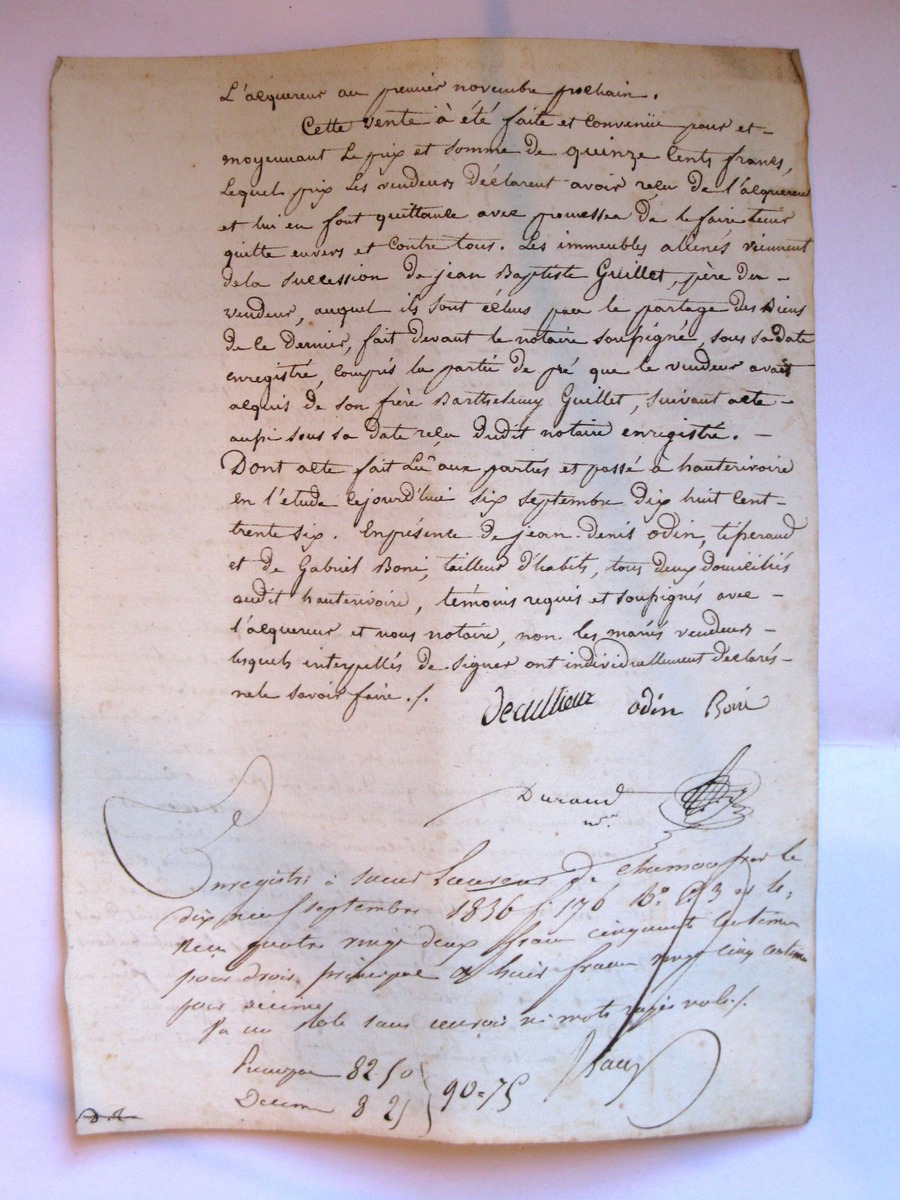 L'acquereur au premier novembre prochain.
Cette vente à été faite et convenüe pour et
moyennant le prix et somme de quinze cents francs,
lequel prix les vendeurs déclarent avoir reçu de l'acquereur
et lui en font quittance avec promesse de le faire tenir
quitte envers et contre tous. Les immeubles aliénés viennent
dela succession de jean Baptiste Guillet, père du
vendeur, auquel ils sont échus par le partage des Biens
de ce dernier, fait devant le notaire soussigné, sous sa date
enregistré, compris la partie de pré que le vendeur avait
acquis de son frère Barthelemy Guillet, suivant acte
aussi sous sa date reçu dudit notaire enregistré.
Dont acte fait Lû aux parties et passé à hauterivoire
en l'étude cejourd'hui six septembre dix huit cent
trente six. En présence de jean-denis odin, tisserand
et de Gabriel Boni, tailleur d'habits, tous deux domiciliés
audit hauterivoire, témoins requis et soussignés avec
l'acquereur et nous notaire, non les mariés vendeurs
lesquels interpellés de signer ont individuellement déclarés
nele savoir faire ./.
Decullieux odin Boni
Durand
nre.
Enregistré à saint Laurent de chamousset le
dix neuf septembre 1836 f. 176 Ro. C. 3 et
Reçu quatre vingt deux francs cinquante centimes
pour droit principal et huit francs vingt cinq centimes
pour décimes
sans renvois ni mots rayés nuls ./.
Principal 82 50
Décime 8 25
90-75